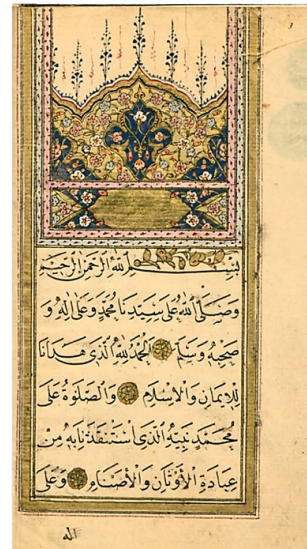 بِسْمِ اللهِ الرَّحْمٰنِ الرَّحِيمِ
وَصَلَّى اللهُ عَلٰى سَيِّدِنَا مُحَمَّدٍ وَعَلٰى اٰلِهِ وَ
صَحْبِهِ وَسَلَّمَ اَلْحَمْدُ لِلّٰهِ الَّذِى هَدَانَا
لِلْاِيمَانِ وَالْاِسْلَامِ وَالصَّلٰوةُ عَلٰى
مُحَمَّدٍ نَبِيِّهِ الَّذِى اسْتَنْقَذَنَا بِهِ مِنْ
عِبَادَةِ الْاَوْثَانِ وَالْاَصْنَامِ وَعَلٰى
اله